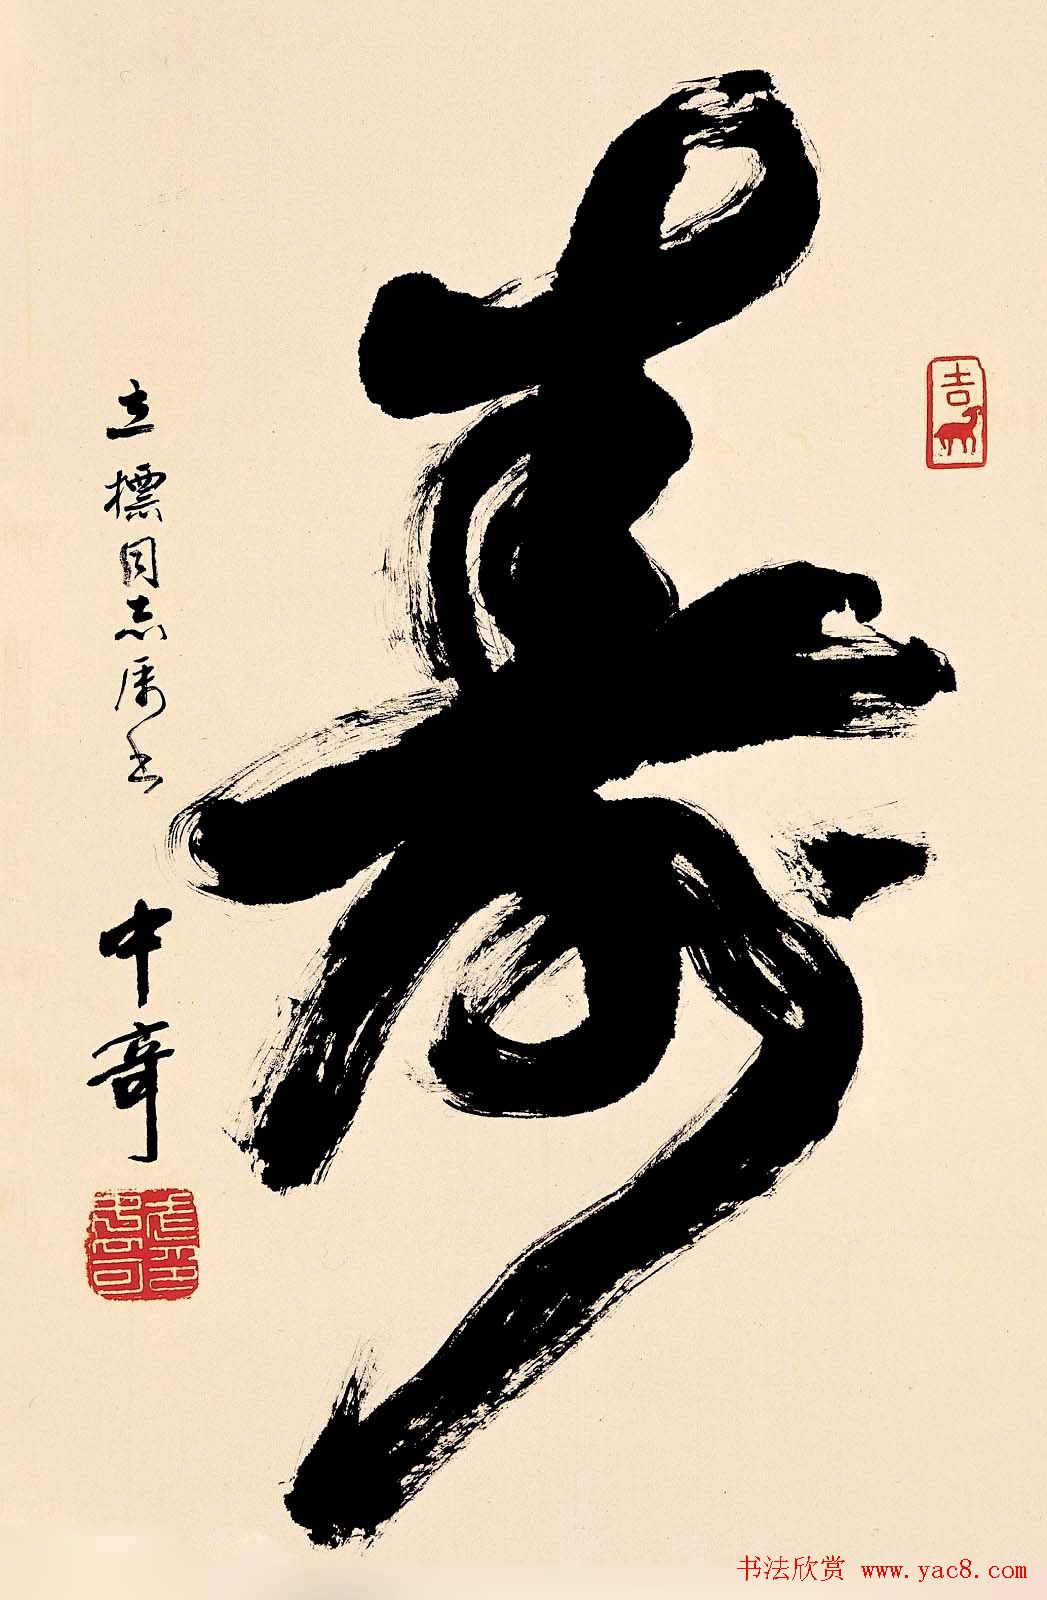 寿
吉
立標同志属书
中奇
书法欣赏 www.yac8.com